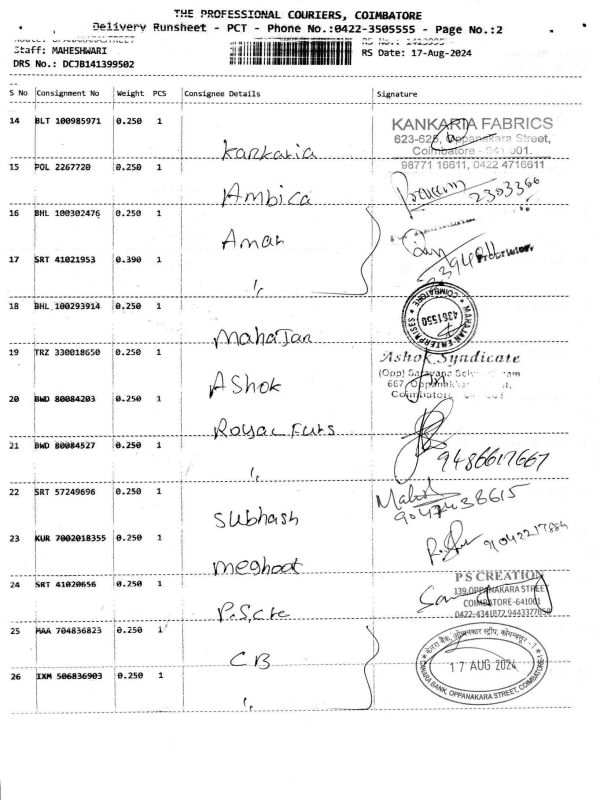 THE PROFESSIONAL COURIERS, COIMBATORE
Delivery Runsheet - PCT - Phone No.:0422-3505555 - Page No.:2
Staff: MAHESHWARI
RS Date: 17-Aug-2024
DRS No.: DCJB141399502
S No Consignment No Weight PCS Consignee Details Signature
14 BLT 100985971 0.250 1
KANKARIA FABRICS
623-625, Oppanakara Street,
Coimbatore - 641 001.
Kankaria
98771 16611, 0422 4716611
15 POL 2267720 0.250 1
Ambica
2303366
16 BHL 100302476 0.250 1
Aman
17 SRT 41021953 0.390 1
Proprietor
"
18 BHL 100293914 0.250 1
MAHAJAN ENTERPRISES COIMBATORE
4361550
Mahajan
19 TRZ 330018650 0.250 1
Ashok Syndicate
(Opp)
667,
Ashok
20 BWD 80084203 0.250 1
Royal Furs
21 BWD 80084527 0.250 1
9486617667
"
22 SRT 57249696 0.250 1
9047438615
Subhash
23 KUR 7002018355 0.250 1
Meghoot
24 SRT 41020656 0.250 1
P S CREATION
139, OPPANAKARA STREET
COIMBATORE-641001
P.S.Cre
25 MAA 704836823 0.250 1
CB
17 AUG 2024
CANARA BANK, OPPANAKARA STREET, COIMBATORE-1
26 IXM 506836903 0.250 1
"